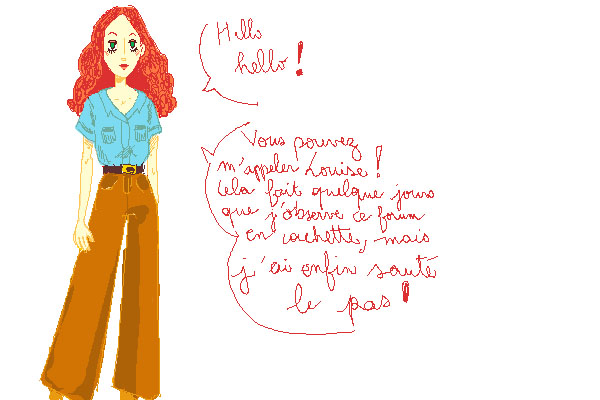 Hello
hello !
Vous pouvez
m'appeler Louise !
Cela fait quelque jours
que j'observe ce forum
en cachette, mais
j'ai enfin sauté
le pas !